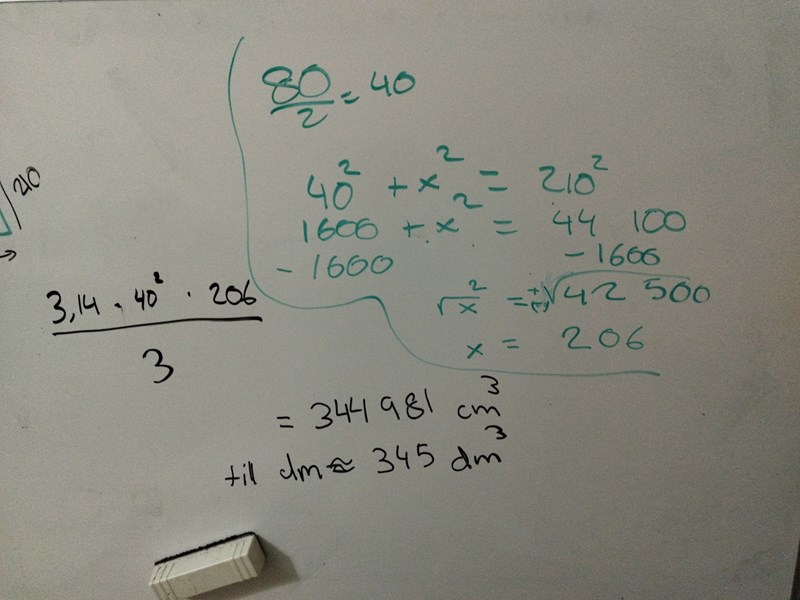 80/2 = 40
40² + x² = 210²
1600 + x² = 44 100
- 1600 - 1600
√x² = ±√42 500
x = 206
210
3,14 · 40² · 206
3
= 344 981 cm³
till dm ≈ 345 dm³